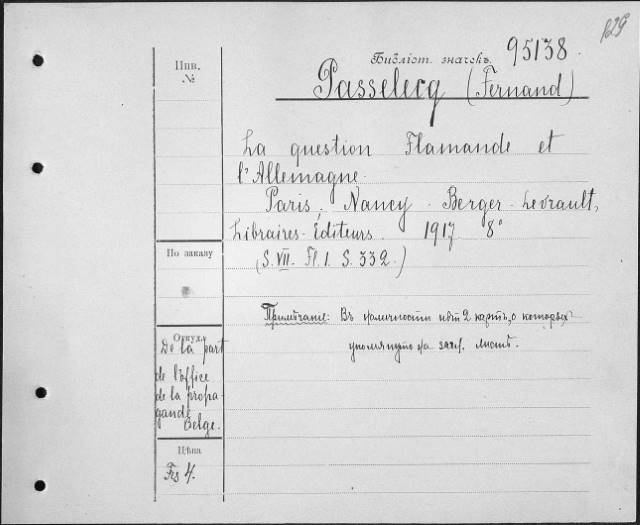 129
Библіот. значекъ. 95138
Passelecq (Fernand)
Инв.
№
La question Flamande et
l'Allemagne.
Paris, Nancy. Berger-Levrault,
Libraires-Éditeurs. 1917 8°
(S. VII. Fl. 1. S. 332.)
По заказу
Примѣчаніе: Въ наличности нѣт 2 картъ, о которых
упомянуто на загл. листѣ.
Откуда
De la part
de l'office
de la propa-
gande
Belge.
Цѣна
Frs 4.